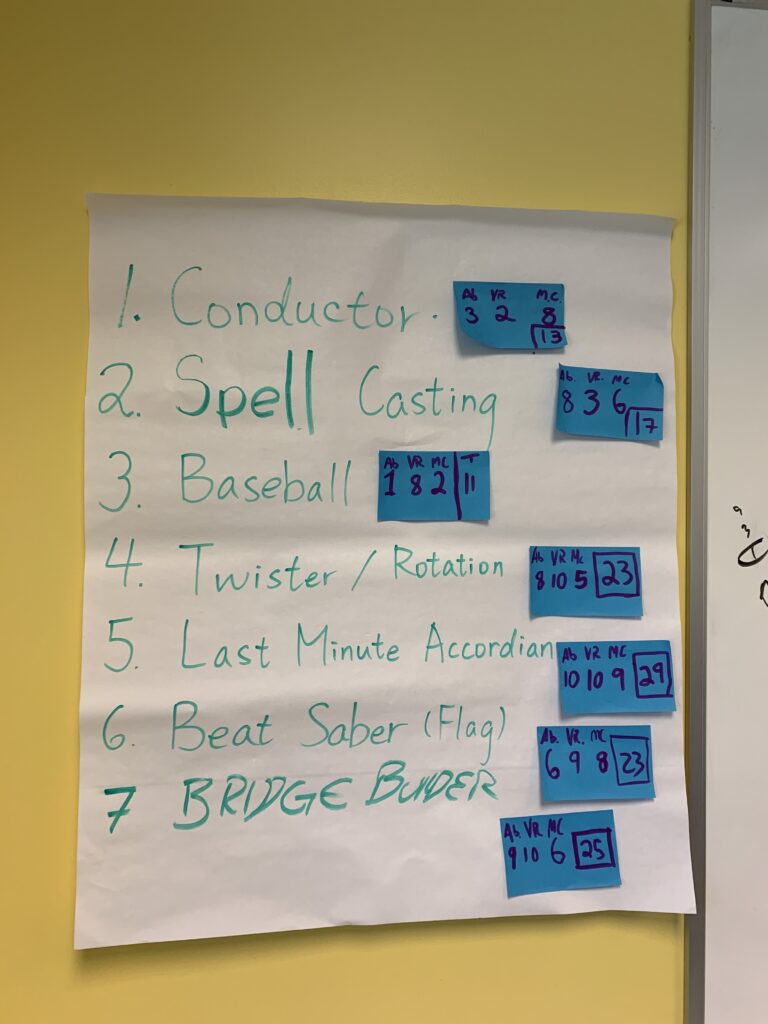 1. Conductor.
Ab VR M.C.
3 2 8
13
2. Spell Casting
Ab. VR. MC
8 3 6
17
3. Baseball
Ab VR MC T
1 8 2 11
4. Twister / Rotation
Ab VR MC
8 10 5 23
5. Last Minute Accordian
Ab VR MC
10 10 9 29
6. Beat Saber (Flag)
Ab. VR. MC
6 9 8 23
7 BRIDGE BUIDER
Ab VR MC
9 10 6 25